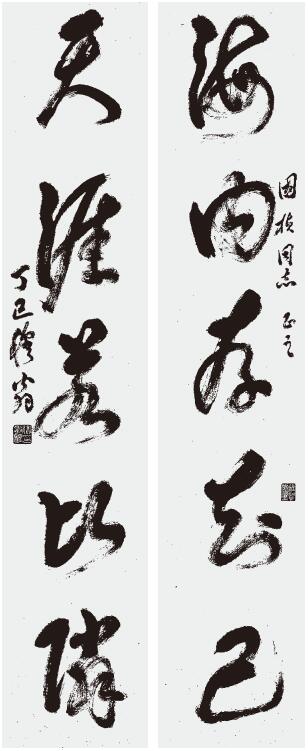 海内存知己
國楨同志 正之
天涯若比鄰
丁巳 穆翁